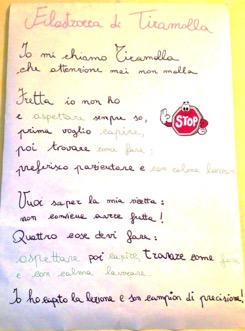 Filastrocca di Tiramolla
Io mi chiamo Tiramolla
che attenzione mai non molla
Fretta io non ho
e aspettare sempre so,
prima voglio capire,
poi trovare come fare:
preferisco partecipare e con calma lavorare
STOP
Vuoi saper la mia ricetta:
non conviene avere fretta!
Quattro cose devi fare:
aspettare poi capire, trovare come fare
e con calma lavorare.
Io ho capito la lezione e son campion di precisione!